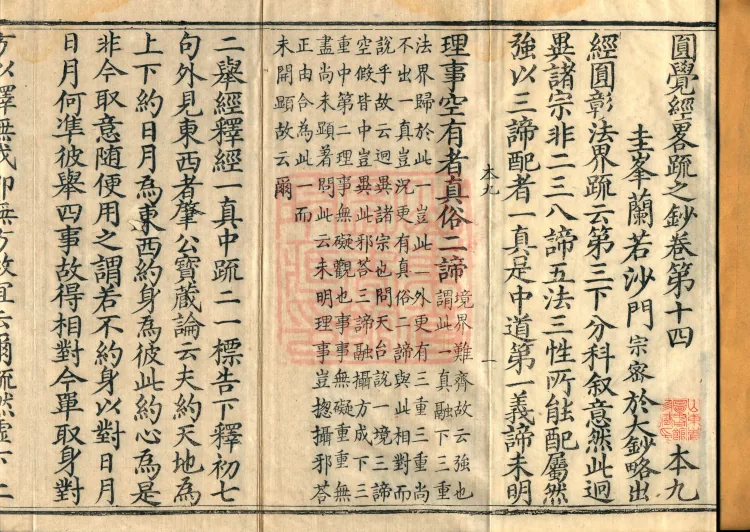 圓覺經畧疏之鈔卷第十四 本九
圭峯蘭若沙門 宗密 於大鈔略出
經圓彰法界疏云第三下分科叙意然此迥
異諸宗非二三八諦五法三性所能配屬然
強以三諦配者一真是中道第一義諦未明
本九 一
理事空有者真俗二諦
境界難齊故云強也
謂此一真融下三重
法界歸於此一豈此一外更有三重三重尚
不出一真豈況更有真俗二諦與此相對而
說乎故云迥異諸宗也問天台說一境三諦
空假皆中豈異此邪荅三諦融攝方成下三
重中第二理事無礙觀也事事無礙重重無
盡尚未顯著問此云未明理事豈揔攝邪荅
正由合為此一而
未開顯故云爾
二舉經釋經一真中疏二一標告下釋初七
句外見東西者肇公寶藏論云夫約天地為
上下約日月為東西約身為彼此約心為是
非今取意隨便用之謂若不約身以對日月
日月何準彼舉四事故得相對今單取身對